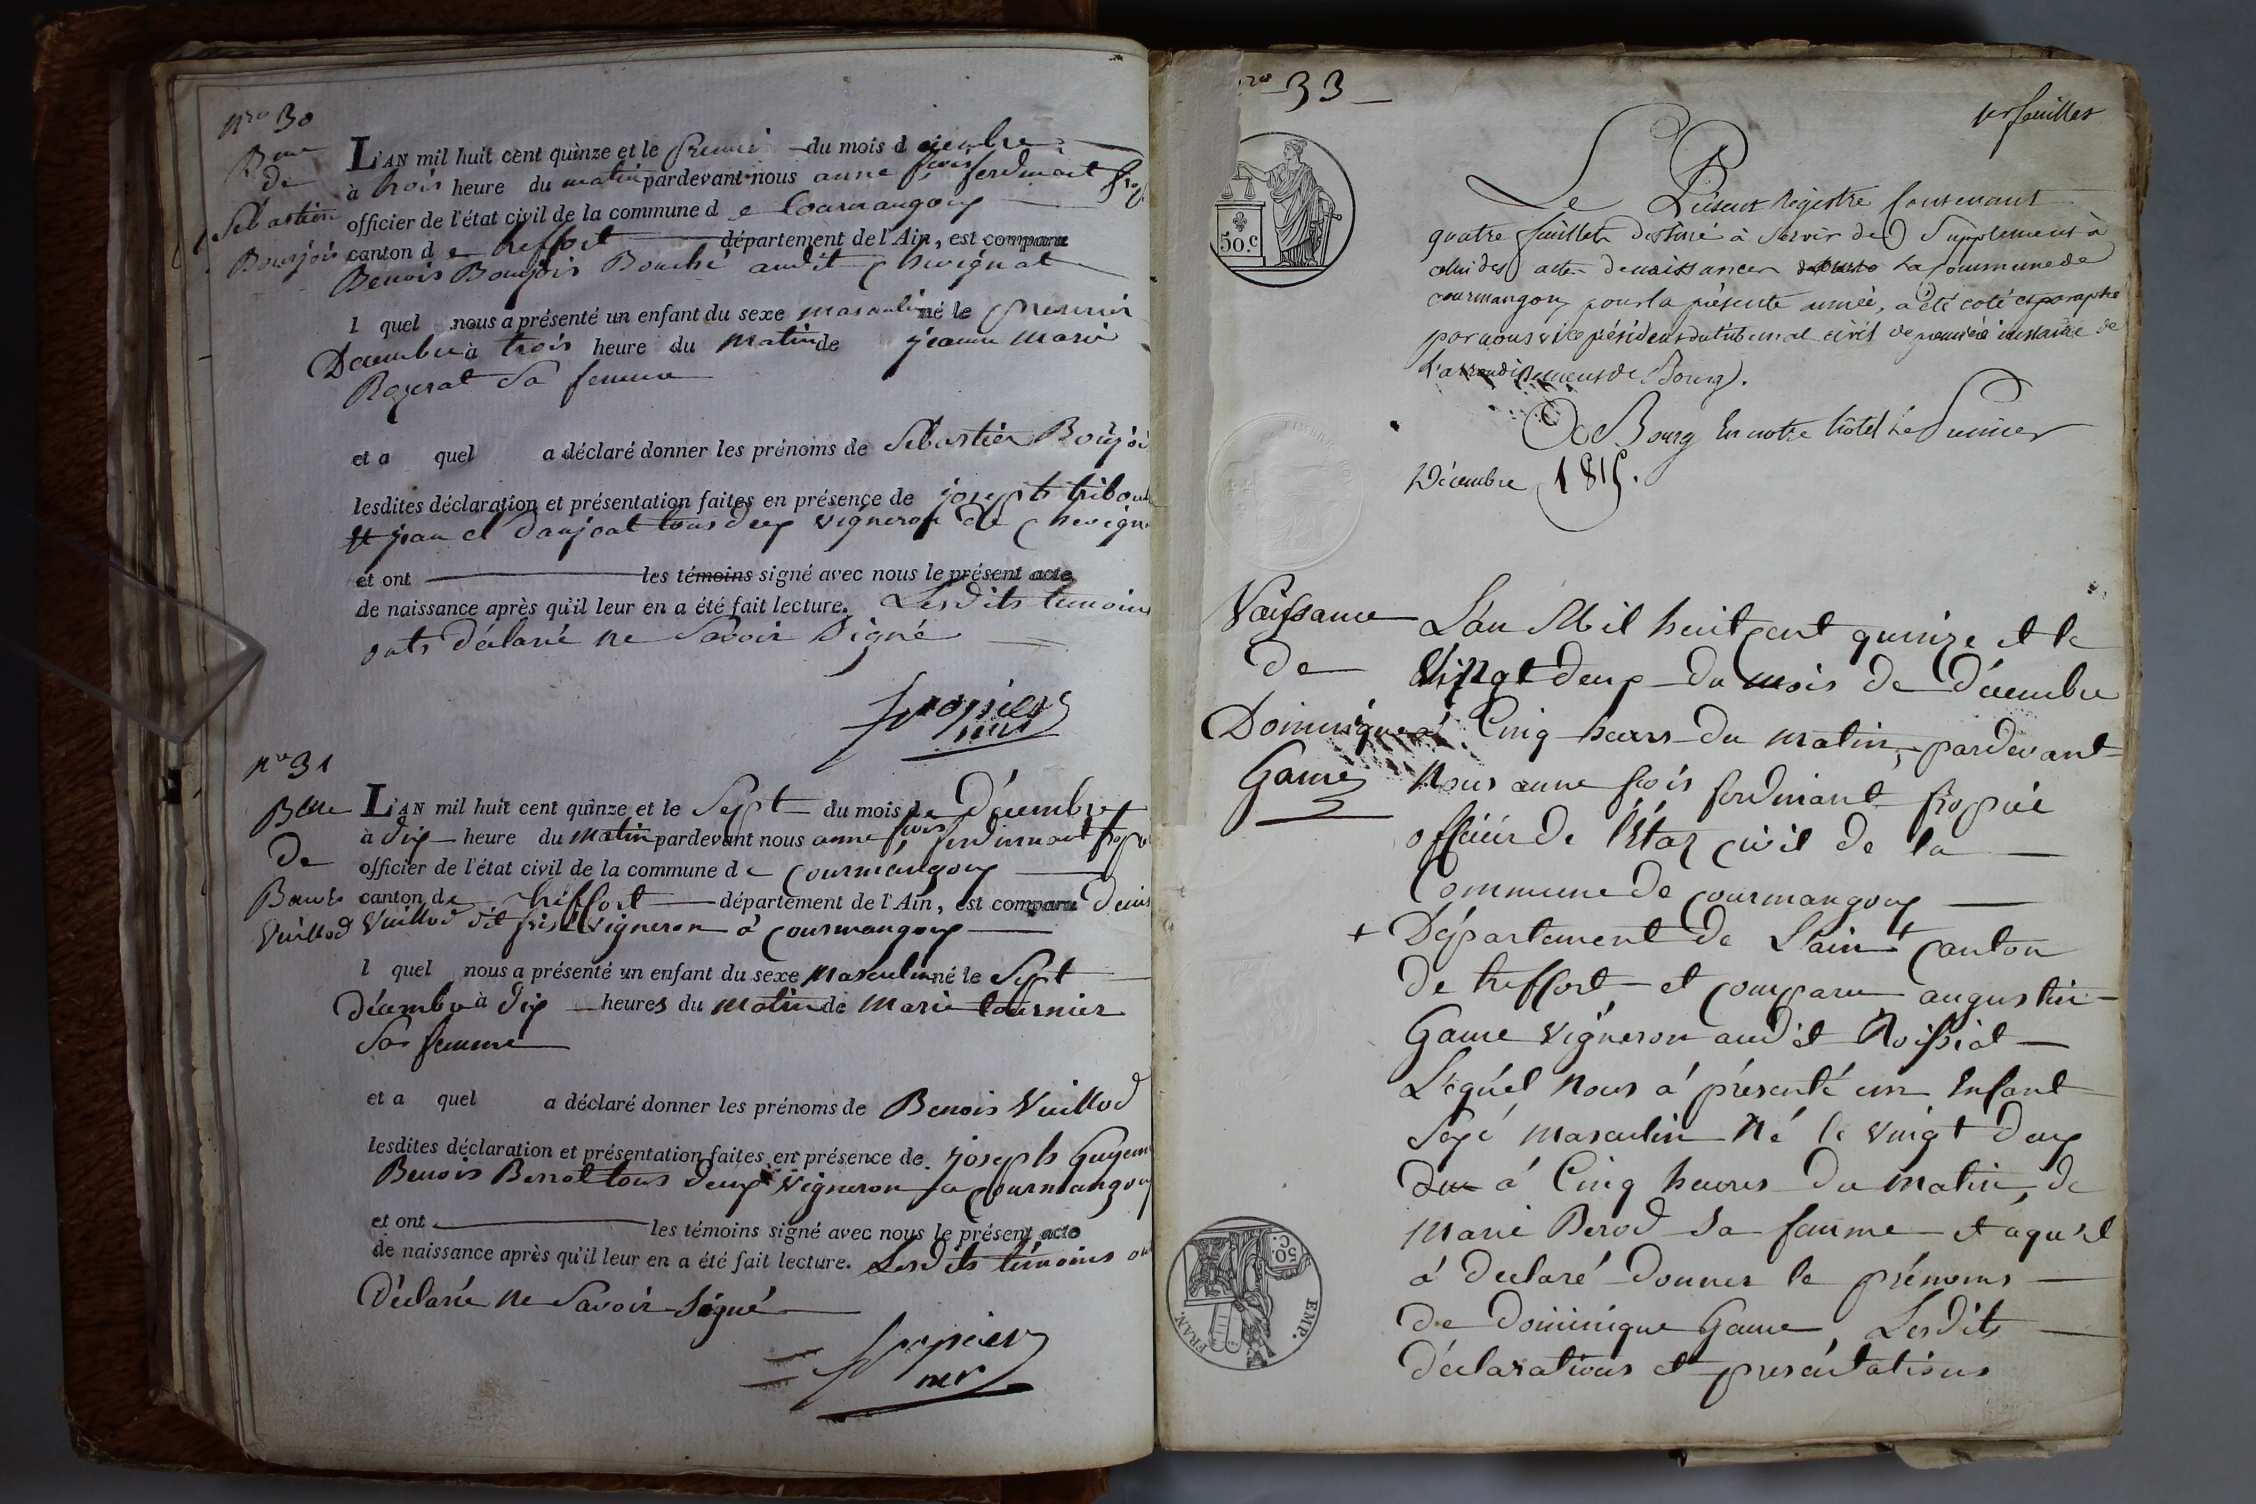 nro 30
Bme
de
Sébastien
Bourjois
L'AN mil huit cent quinze et le premier du mois d
à trois heure du matin pardevant nous anne fcois ferdinant
officier de l'état civil de la commune de Courmangoux
canton de treffort département de l'Ain, est comparu
Benois Bourjois audit chevignat
l quel nous a présenté un enfant du sexe masculin né le premier
Décembre à trois heure du matin de jeanne Marie
sa femme
et a quel a déclaré donner les prénoms de Sébastien Bourjoi
lesdites déclaration et présentation faites en présence de joseph
et jean tous deux vigneron de chevign
et ont les témoins signé avec nous le présent acte
de naissance après qu'il leur en a été fait lecture. Lesdits temoins
onts déclaré ne savoir signé
nro 31
de
Benois
Vuillod
L'AN mil huit cent quinze et le Sept du mois de Décembre
à dix heure du matin pardevant nous anne fcois ferdinant
officier de l'état civil de la commune de courmangoux
canton de treffort département de l'Ain, est comparu Denis
Vuillod dit vigneron à courmangoux
l quel nous a présenté un enfant du sexe masculin né le Sept
décembre à dix heures du matin de Marie tournier
Sa femme
et a quel a déclaré donner les prénoms de Benois Vuillod
lesdites déclaration et présentation faites en présence de joseph
Benois tous deux vigneron a courmangoux
et ont les témoins signé avec nous le présent acte
de naissance après qu'il leur en a été fait lecture. Lesdits témoins on
Déclaré ne Savoir Signé
nro 33
1er feuillet
50.C
Le Présent Registre Contenant
quatre feuillets destiné à servir de Supplément à
celui des actes de naissances de la Commune de
courmangoux pour la présente année, a été coté et paraphé
par nous vice président du tribunal civil de première instance de
L'arrondissement de Bourg.
A Bourg En notre hôtel Le Premier
Décembre 1815.
Naissance
de
Dominique
Game
L'an Mil huit cent quinze et le
Vingt deux du mois de décembre
à Cinq heurs du matin, pardevant
Nous anne fcois ferdinant
officier de l'état civil de la
Commune de courmangoux
+ Département de L'ain + canton
de treffort et comparu augustin
Game vigneron audit Roissiat
Lequel Nous à présenté un Enfant
Sexe masculin Né le vingt deux
à Cinq heures du matin, de
Marie Berod sa famme et aquel
à declaré donner le prénoms
de dominique Game, Lesdits
déclarations et présentations
50.C.
EMP.
FRAN.